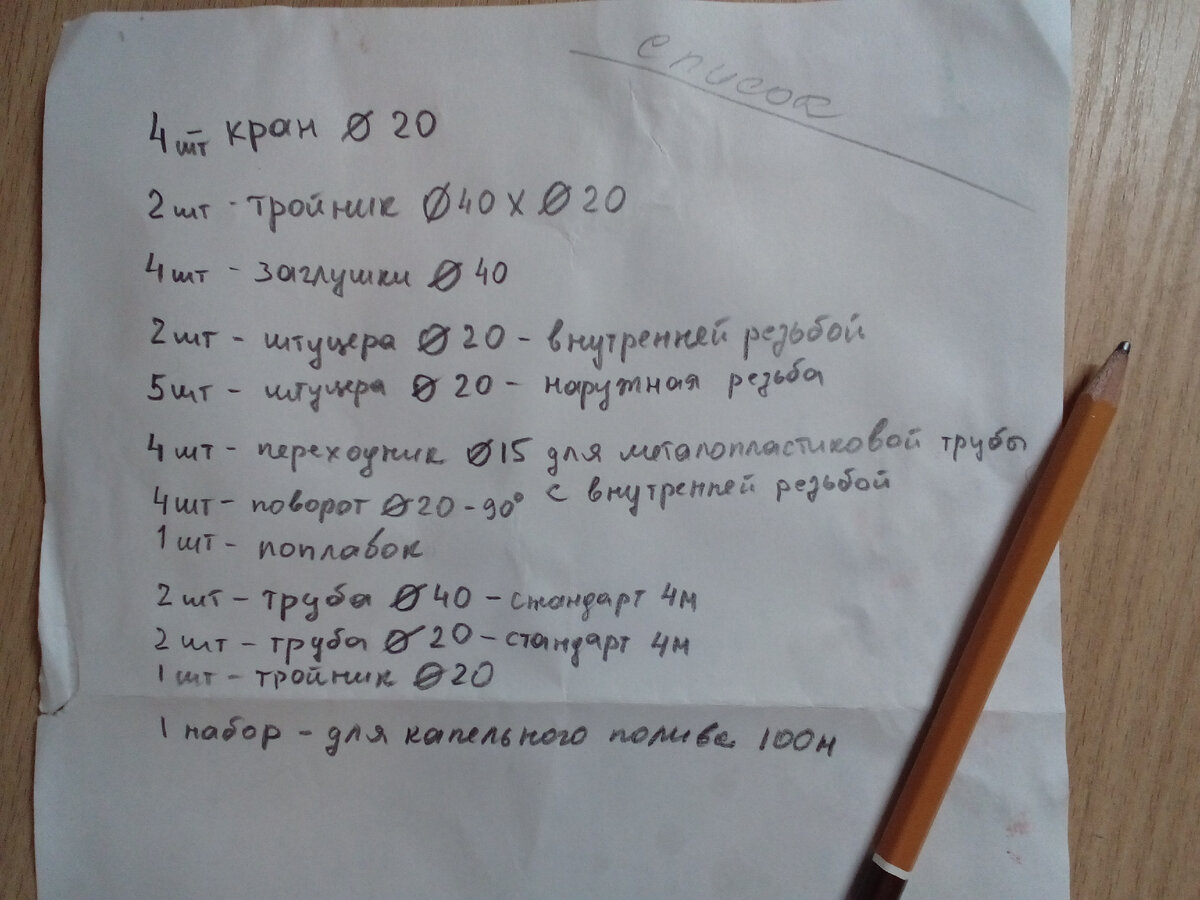 список
4шт кран Ø 20
2шт - тройник Ø40 х Ø20
4шт - заглушки Ø 40
2шт - штуцера Ø 20 - внутренней резьбой
5шт - штуцера Ø 20 - наружная резьба
4шт - переходник Ø15 для металопластиковой трубы
с внутренней резьбой
4шт - поворот Ø20 - 90°
1шт - поплавок
2шт - труба Ø 40 - стандарт 4м
2шт - труба Ø 20 - стандарт 4м
1шт - тройник Ø20
1 набор - для капельного полива 100м